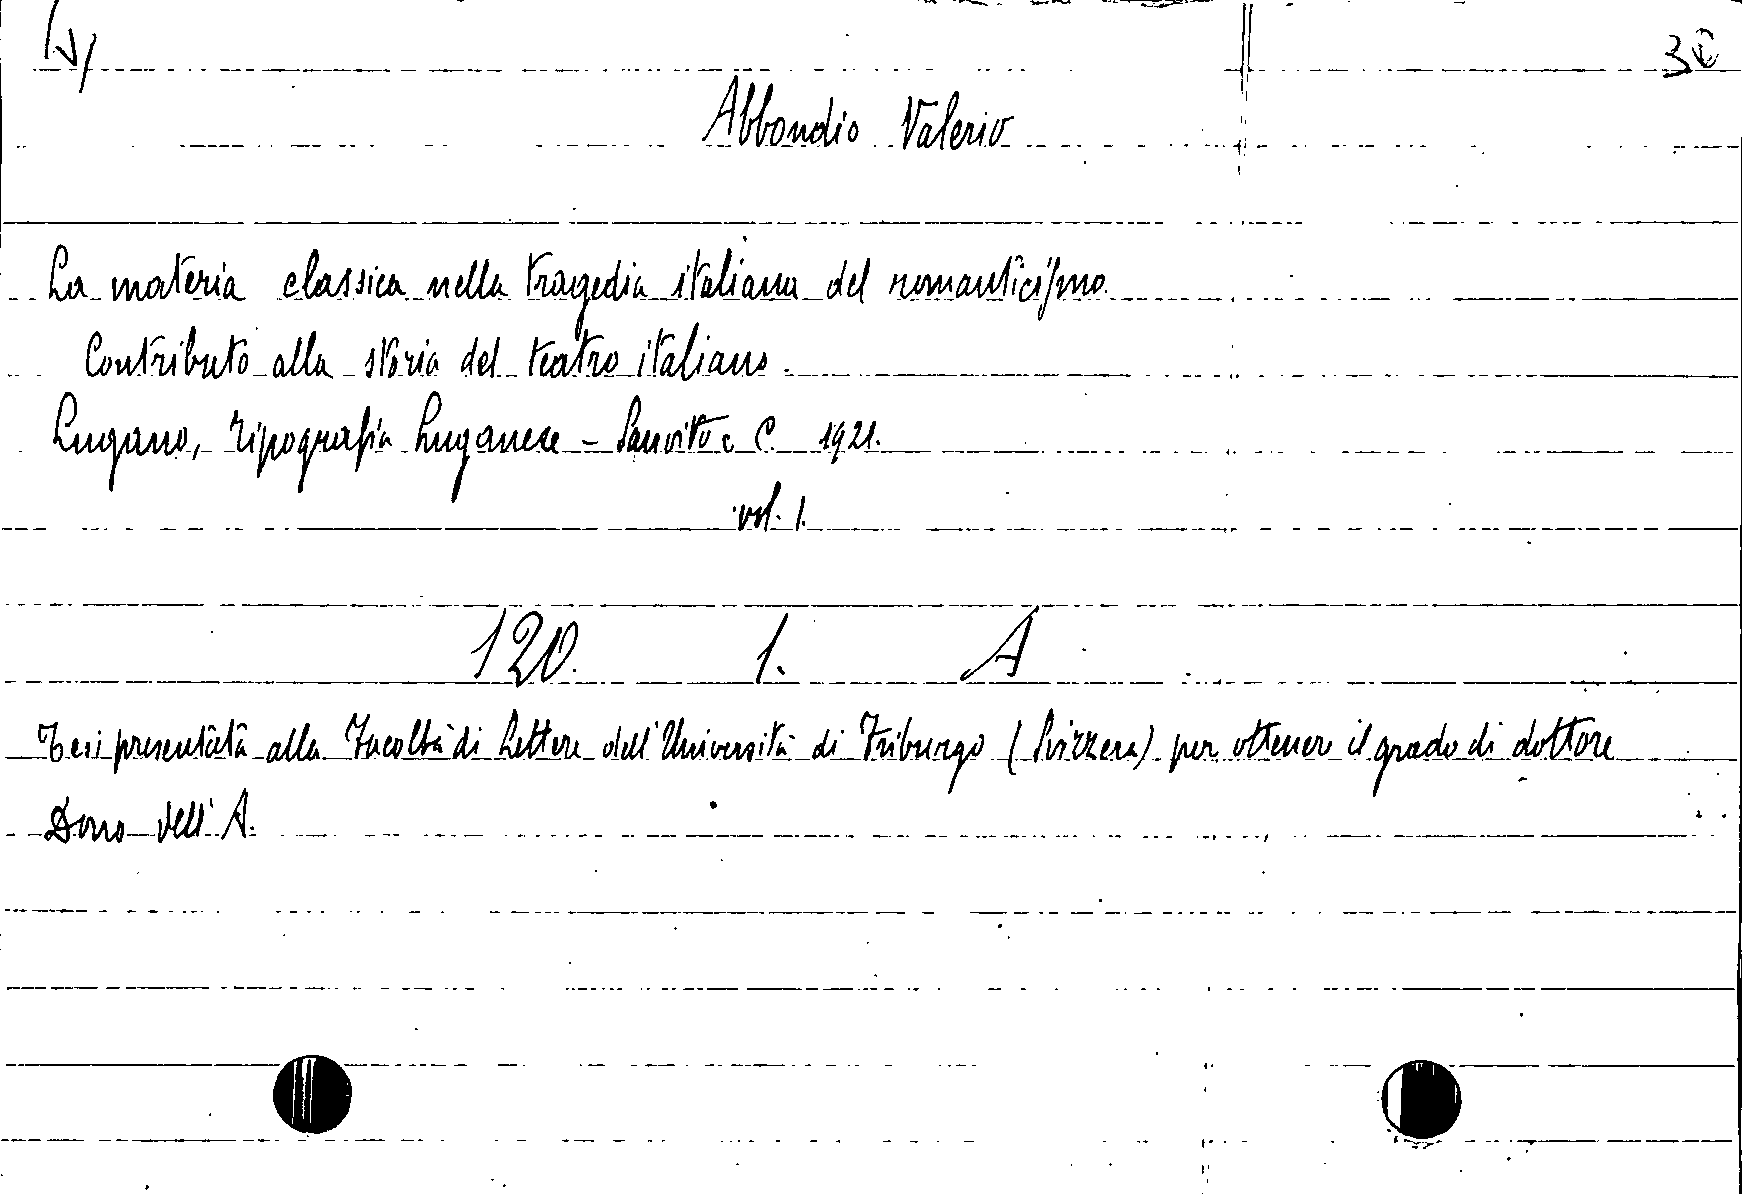 Abbondio Valerio
La materia classica nella tragedia italiana del romanticismo.
Contributo alla storia del teatro italiano.
Lugano, Tipografia Luganese - Sanvito e C. 1921.
vol. 1.
120. 1. A
Tesi presentata alla Facoltà di Lettere dell'Università di Friburgo (Svizzera) per ottenere il grado di dottore
Dono dell'A.